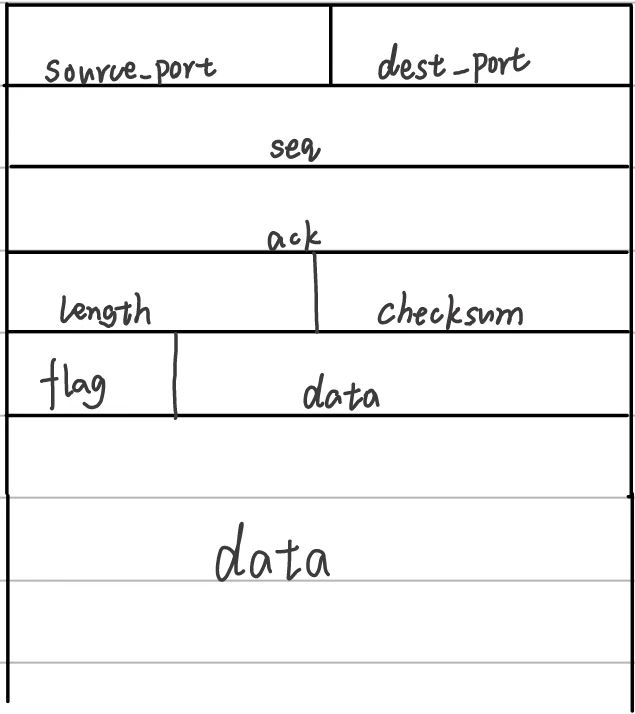 source_port dest_port
seq
ack
length checksum
flag data
data